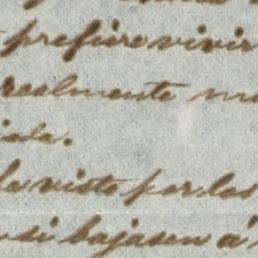 prefiere vivir
realmente
la visto por los
si bajasen á